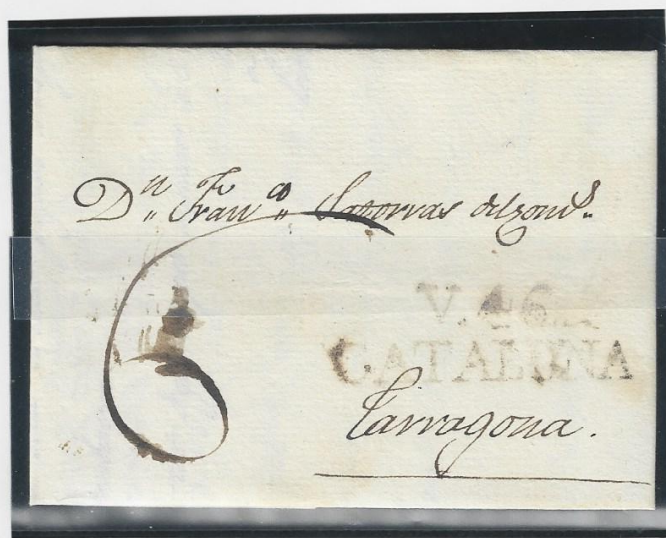 Dn„ Franco„ Satorras
6
V.
CATALUNA
Tarragona.